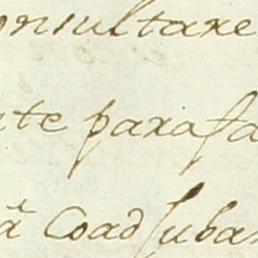 onsultare
nte para fa
ã Coadjuban